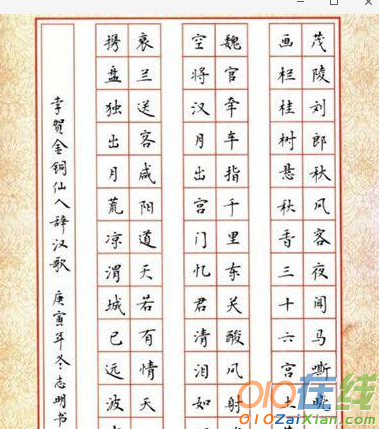 茂陵刘郎秋风客夜闻马嘶晓
画栏桂树悬秋香三十六宫土
魏官牵车指千里东关酸风射
空将汉月出宫门忆君清泪如
衰兰送客咸阳道天若有情天
携盘独出月荒凉渭城已远波
李贺金铜仙人辞汉歌 庚寅年冬志明书
010在线
010ZaiXian.com